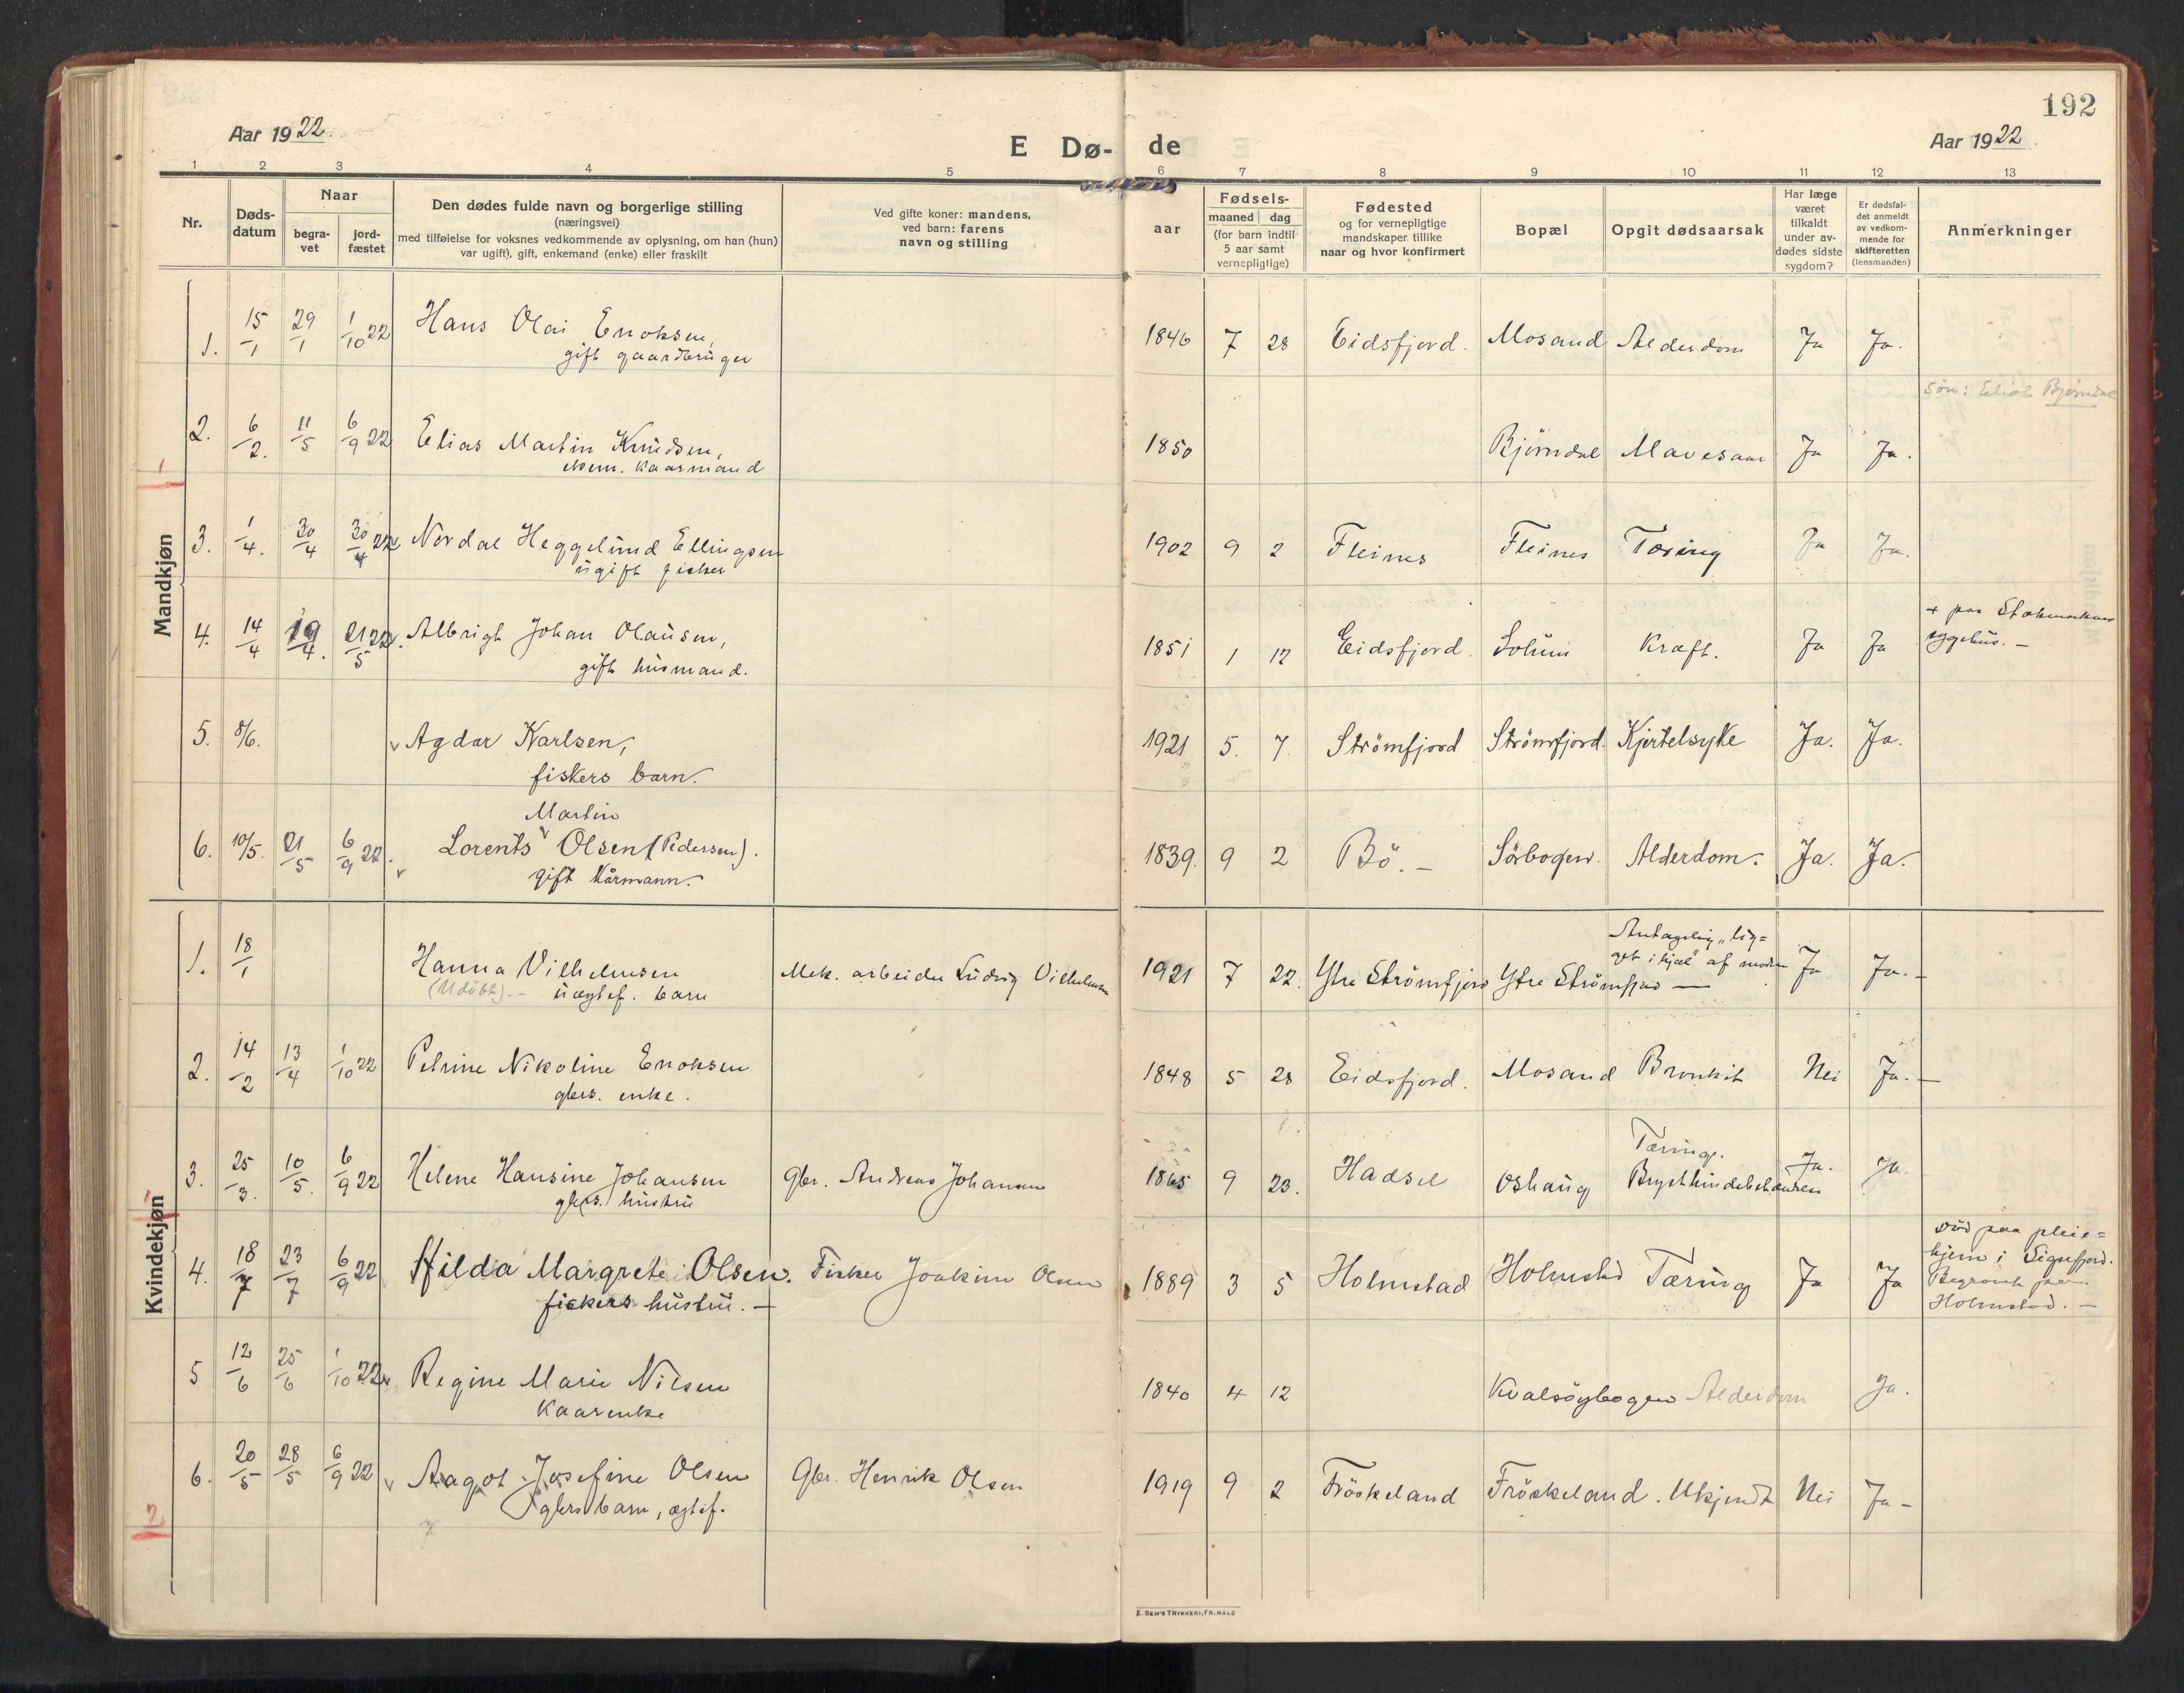 192
Aar 1922.
E Dø- de
Aar 1922.
1 2 3 4 5 6 7 8 9 10 11 12 13
Nr.
Døds-
datum
Naar
begra-
vet
jord-
fæstet
Den dødes fulde navn og borgerlige stilling
(næringsvei)
med tilføielse for voksnes vedkommende av oplysning, om han (hun)
var ugift), gift, enkemand (enke) eller fraskilt
Ved gifte koner: mandens,
ved barn: farens
navn og stilling
aar
Fødsels-
maaned dag
(for barn indtil
5 aar samt
vernepligtige)
Fødested
og for vernepligtige
mandskaper tillike
naar og hvor konfirmert
Bopæl
Opgit dødsaarsak
Har læge
været
tilkaldt
under av-
dødes sidste
sygdom?
Er dødsfal-
det anmeldt
av vedkom-
mende for
skifteretten
(lensmanden)
Anmerkninger
Mandkjøn
1. 15/1 29/1 1/10 22 Hans Olai Enoksen, 1846 7 28 Eidsfjord. Mosand Alderdom Ja Ja.
gift gaardbruger
Søn: Elias Bjørndal
2. 6/2. 11/5 6/9 22 Elias Martin Knudsen, 1850 Bjørndal Mavesaar Ja Ja.
ekem. kaarmand
3. 1/4. 30/4 30/4 22 Nordal Heggelund Ellingsen 1902 9 2 Fleines Fleines Tæring Ja Ja.
ugift fisker
+ paa Stokmarknes
4. 14/4 19/4. 21/5 22. Albrigt Johan Olausen, 1851 1 12 Eidsfjord. Sohum Kræft. Ja Ja sygehus. —
gift husmand.
5. 8/6. v Agdar Karlsen, 1921 5. 7. Strömfjord Strömfjord. Kjertelsyke Ja. Ja.
fiskers barn.
Martin
6. 10/5. 21/5 6/9 22. v Lorents v Olsen (Pedersen). 1839. 9 2 Bö. — Sörbogen. Alderdom. Ja. Ja.
gift kårmann.
Kvindekjøn
Antagelig "lig=
1. 18/1 Hanna Vilhelmsen Mek. arbeider Ludvig Vilhelmsen 1921 7 22. Ytre Strömfjord Ytre Strömfjord get ihjæl" af moren Ja Ja. —
(Udöbt). — uægtef. barn
2. 14/2 13/4 1/10 22 Petrine Nikoline Enoksen 1848 5 28 Eidsfjord. Mosand Bronkit Nei Ja. —
gbrs. enke.
Tæring.
3. 25/3. 10/5. 6/9 22 Helene Hansine Johansen Gbr. Andreas Johansen 1865 9 23. Hadsel Oshaug Ja. Ja.
gbrs. hustru
Död paa pleie=
hjem i Sigerfjord.
4. 18/7 23/7 6/9 22 Hilda Margrete Olsen. Fisker Joakim Olsen 1889 3 5 Holmstad Holmstad Tæring Ja Ja Begravet paa
fiskers hustru. — Holmstad. —
5 12/6 25/6 1/10 22 v Regine Marie Nilsen 1840 4 12 Kvalsöybogen Alderdom Ja.
Kaarenke
6. 20/5 28/5 6/9 22 v Aagot Josefine Olsen Gbr. Henrik Olsen 1919 9 2 Fröskeland Fröskeland. Ukjendt Nei Ja —
gbrs barn, ægtef.
1
2
E. SEM'S TRYKKERI, FR.HALD